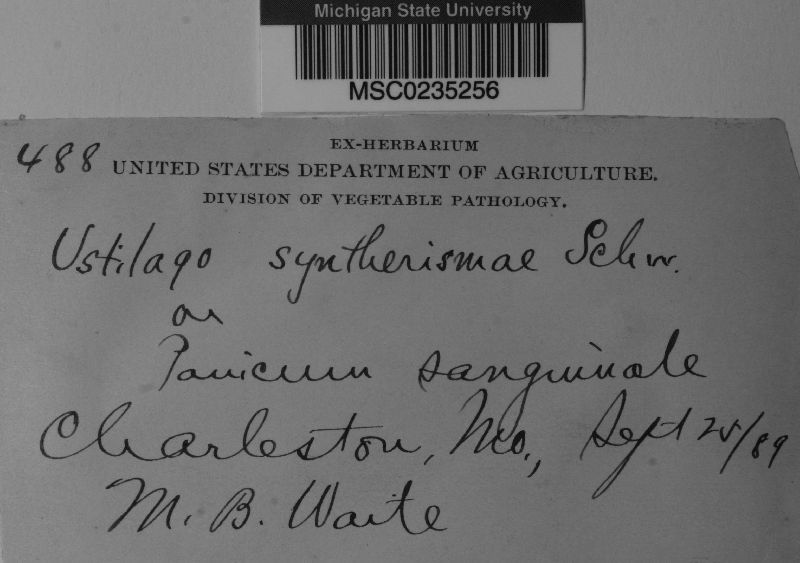 Michigan State University
MSC0235256
488
EX-HERBARIUM
UNITED STATES DEPARTMENT OF AGRICULTURE.
DIVISION OF VEGETABLE PATHOLOGY.
Ustilago syntherismae Schw.
on
Panicum sanguinale
Charleston, Mo., Sept 25/89
M. B. Waite